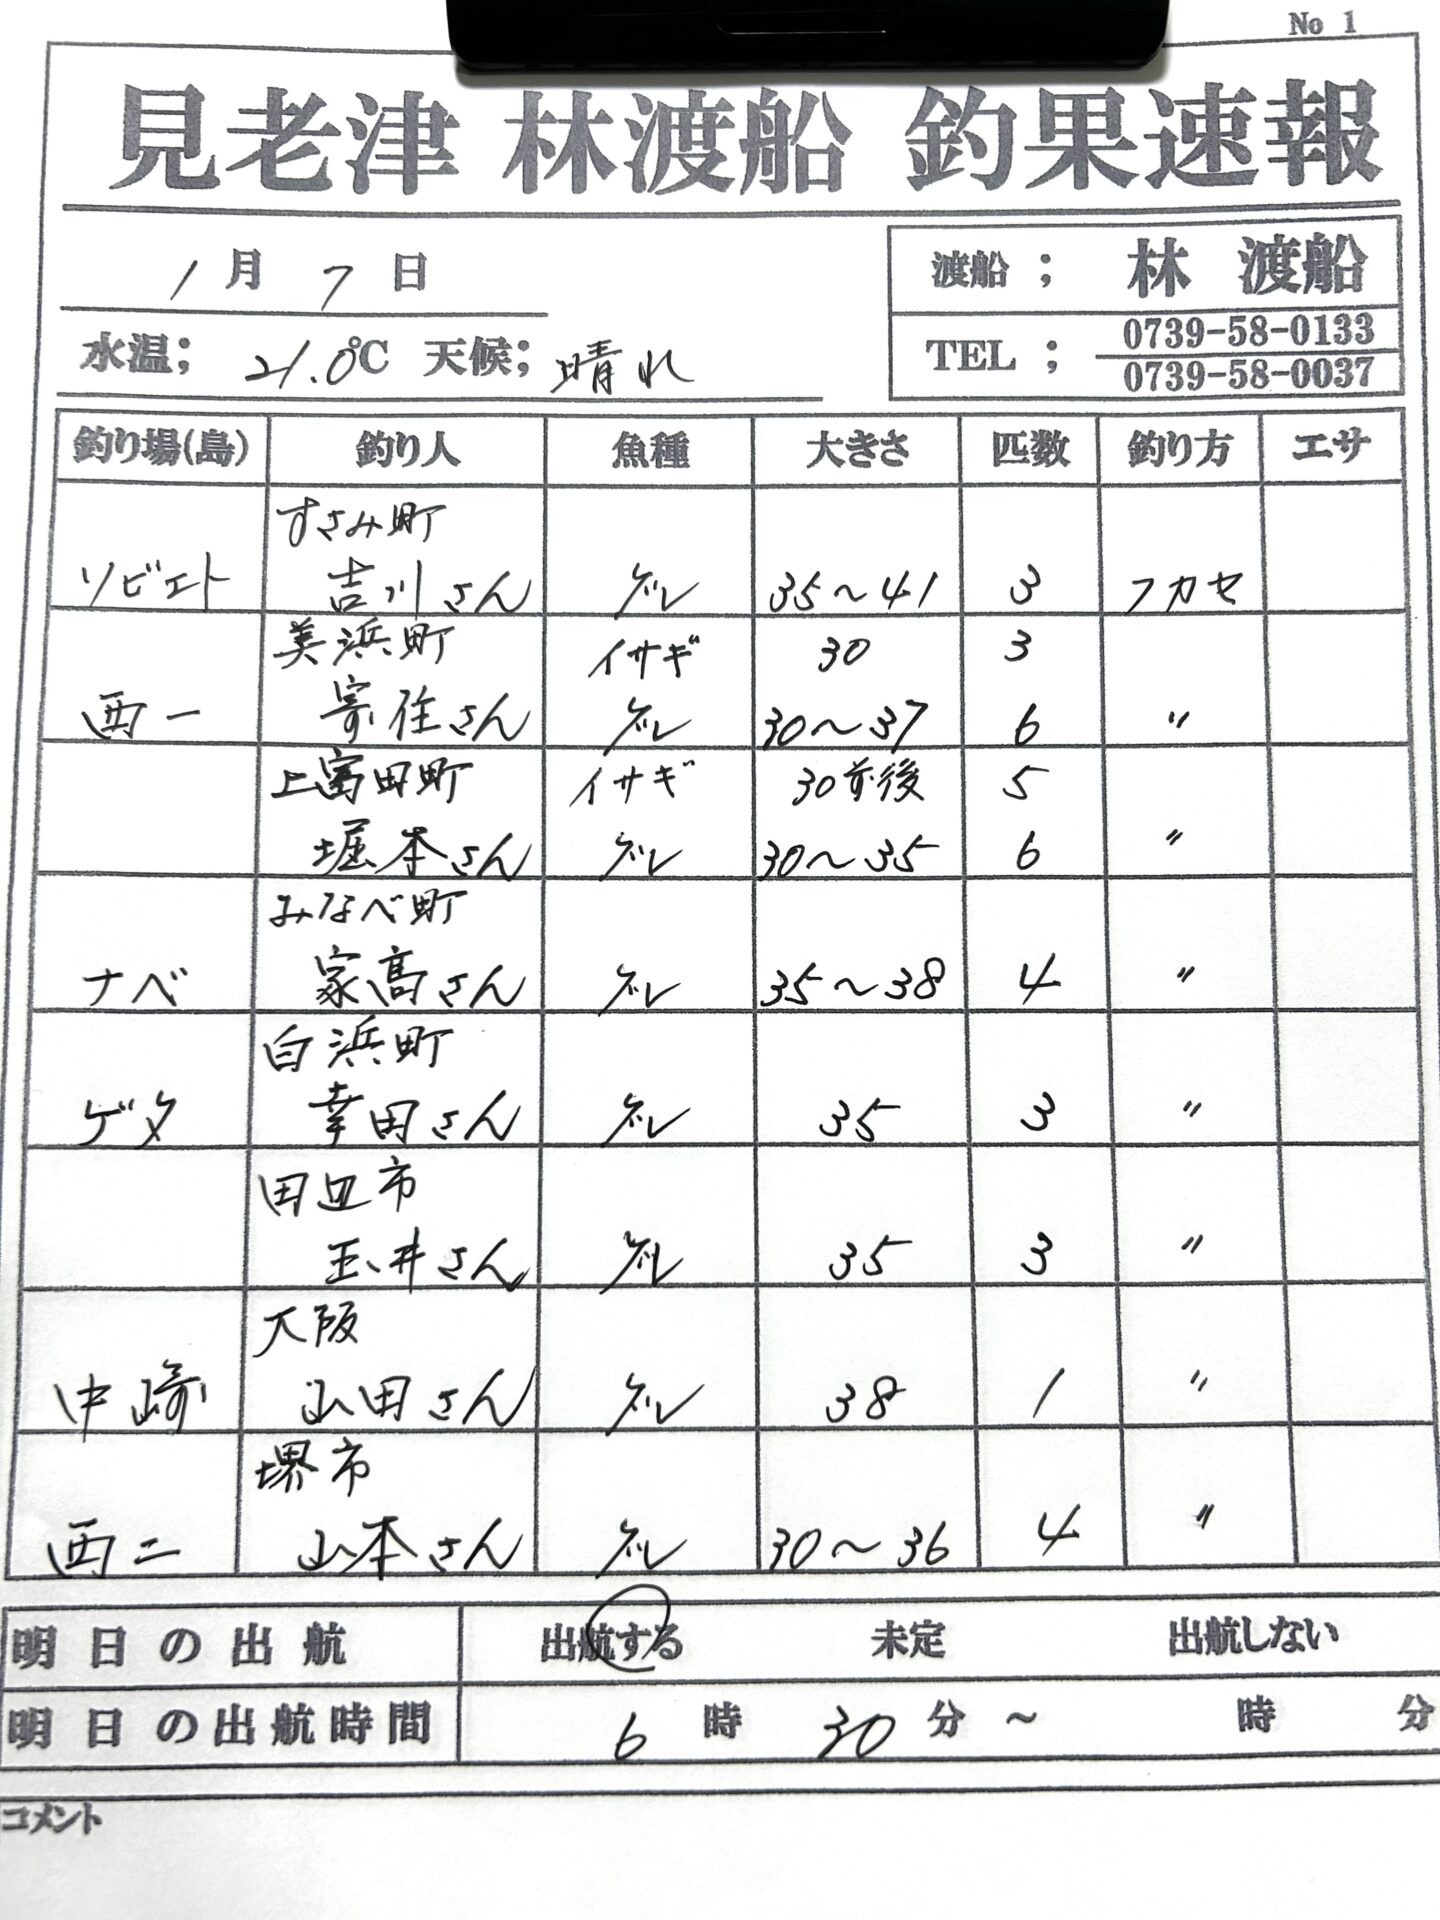 No 1
見老津 林渡船 釣果速報
1月 7日
渡船 ; 林 渡船
水温; 21.0℃ 天候; 晴れ
TEL ; 0739-58-0133
0739-58-0037
釣り場(島) 釣り人 魚種 大きさ 匹数 釣り方 エサ
すさみ町
ソビエト 吉川さん グレ 35〜41 3 フカセ
美浜町 イサギ 30 3
西一 寄住さん グレ 30〜37 6 〃
上富田町 イサギ 30前後 5
堀本さん グレ 30〜35 6 〃
みなべ町
ナベ 家高さん グレ 35〜38 4 〃
白浜町
ゲタ 幸田さん グレ 35 3 〃
田辺市
玉井さん グレ 35 3 〃
大阪
中崎 山田さん グレ 38 1 〃
堺市
西二 山本さん グレ 30〜36 4 〃
明日の出航 出航する 未定 出航しない
明日の出航時間 6時 30分〜 時 分
コメント